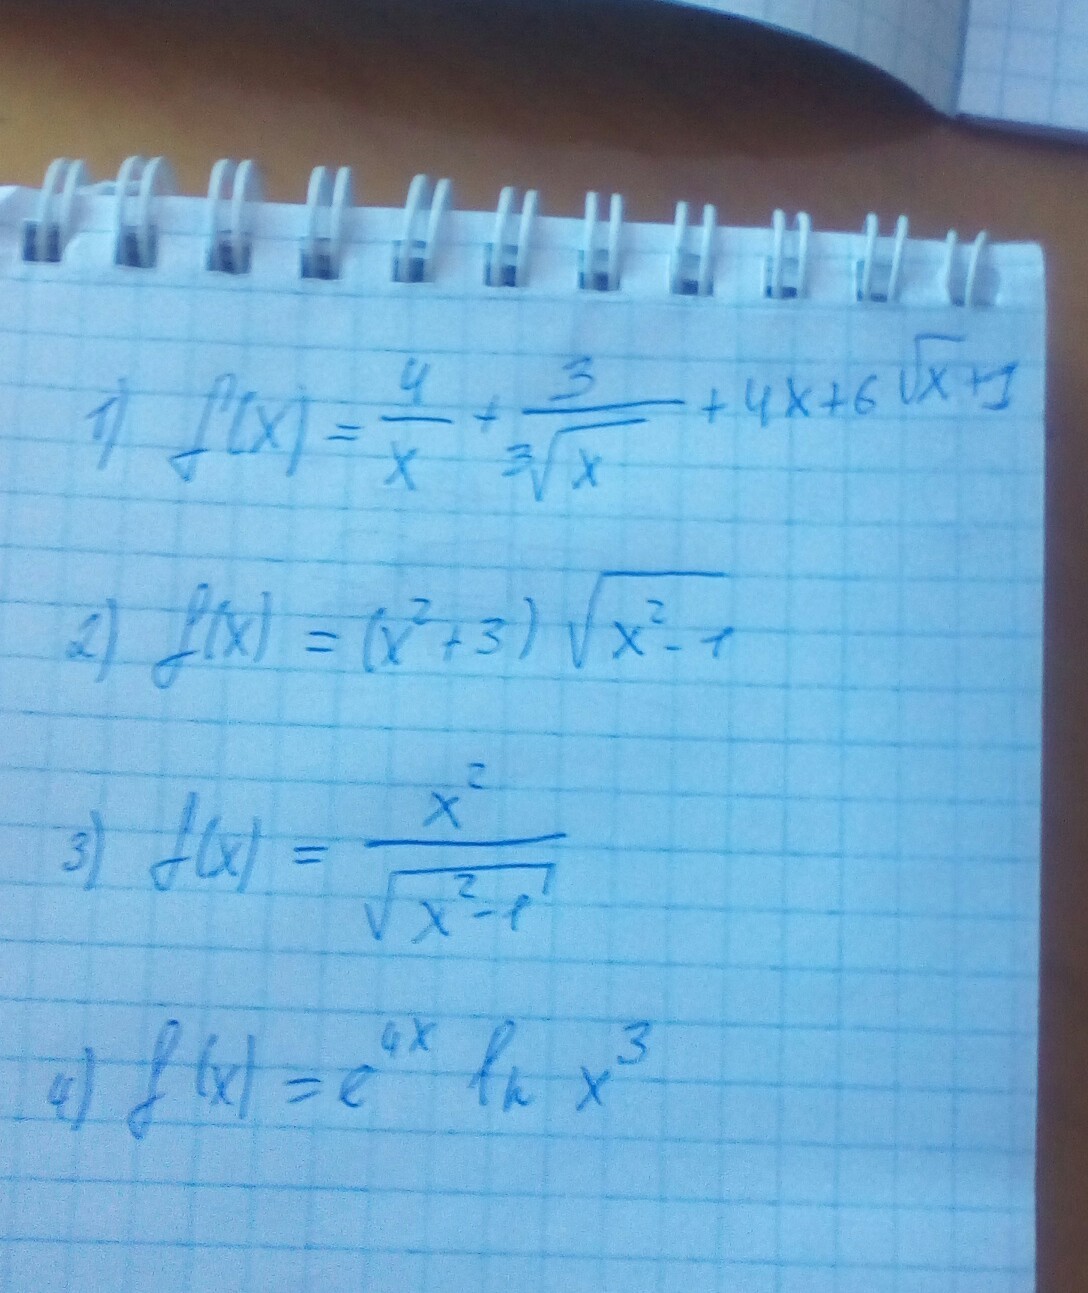 1) f(x) = 4/x + 3/∛x + 4x + 6^(√x+1)
2) f(x) = (x² + 3) √(x² - 1)
3) f(x) = x²/√(x² - 1)
4) f(x) = e^(4x) ln x³